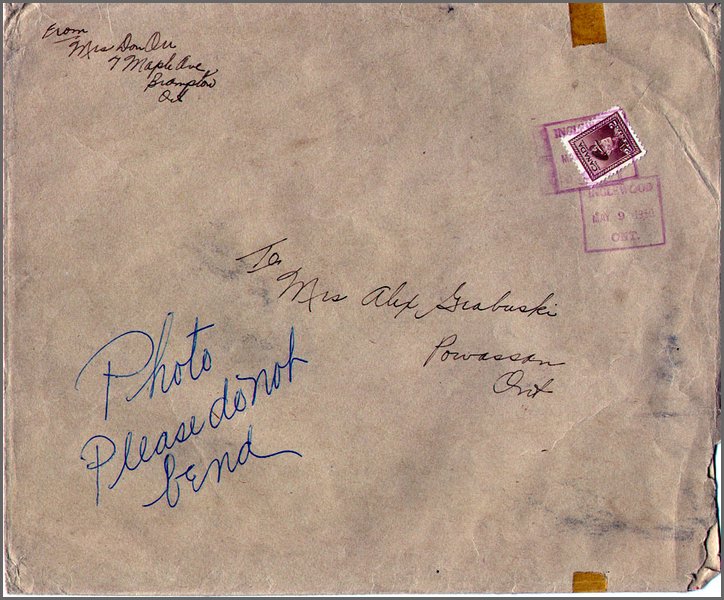 From
Mrs Don Orr
7 Maple Ave
Brampton
Ont
INGLEWOOD
CANADA
INGLEWOOD
MAY 9
ONT.
To
Mrs Alex Grabuski
Powassan
Ont
Photo
Please do not
bend